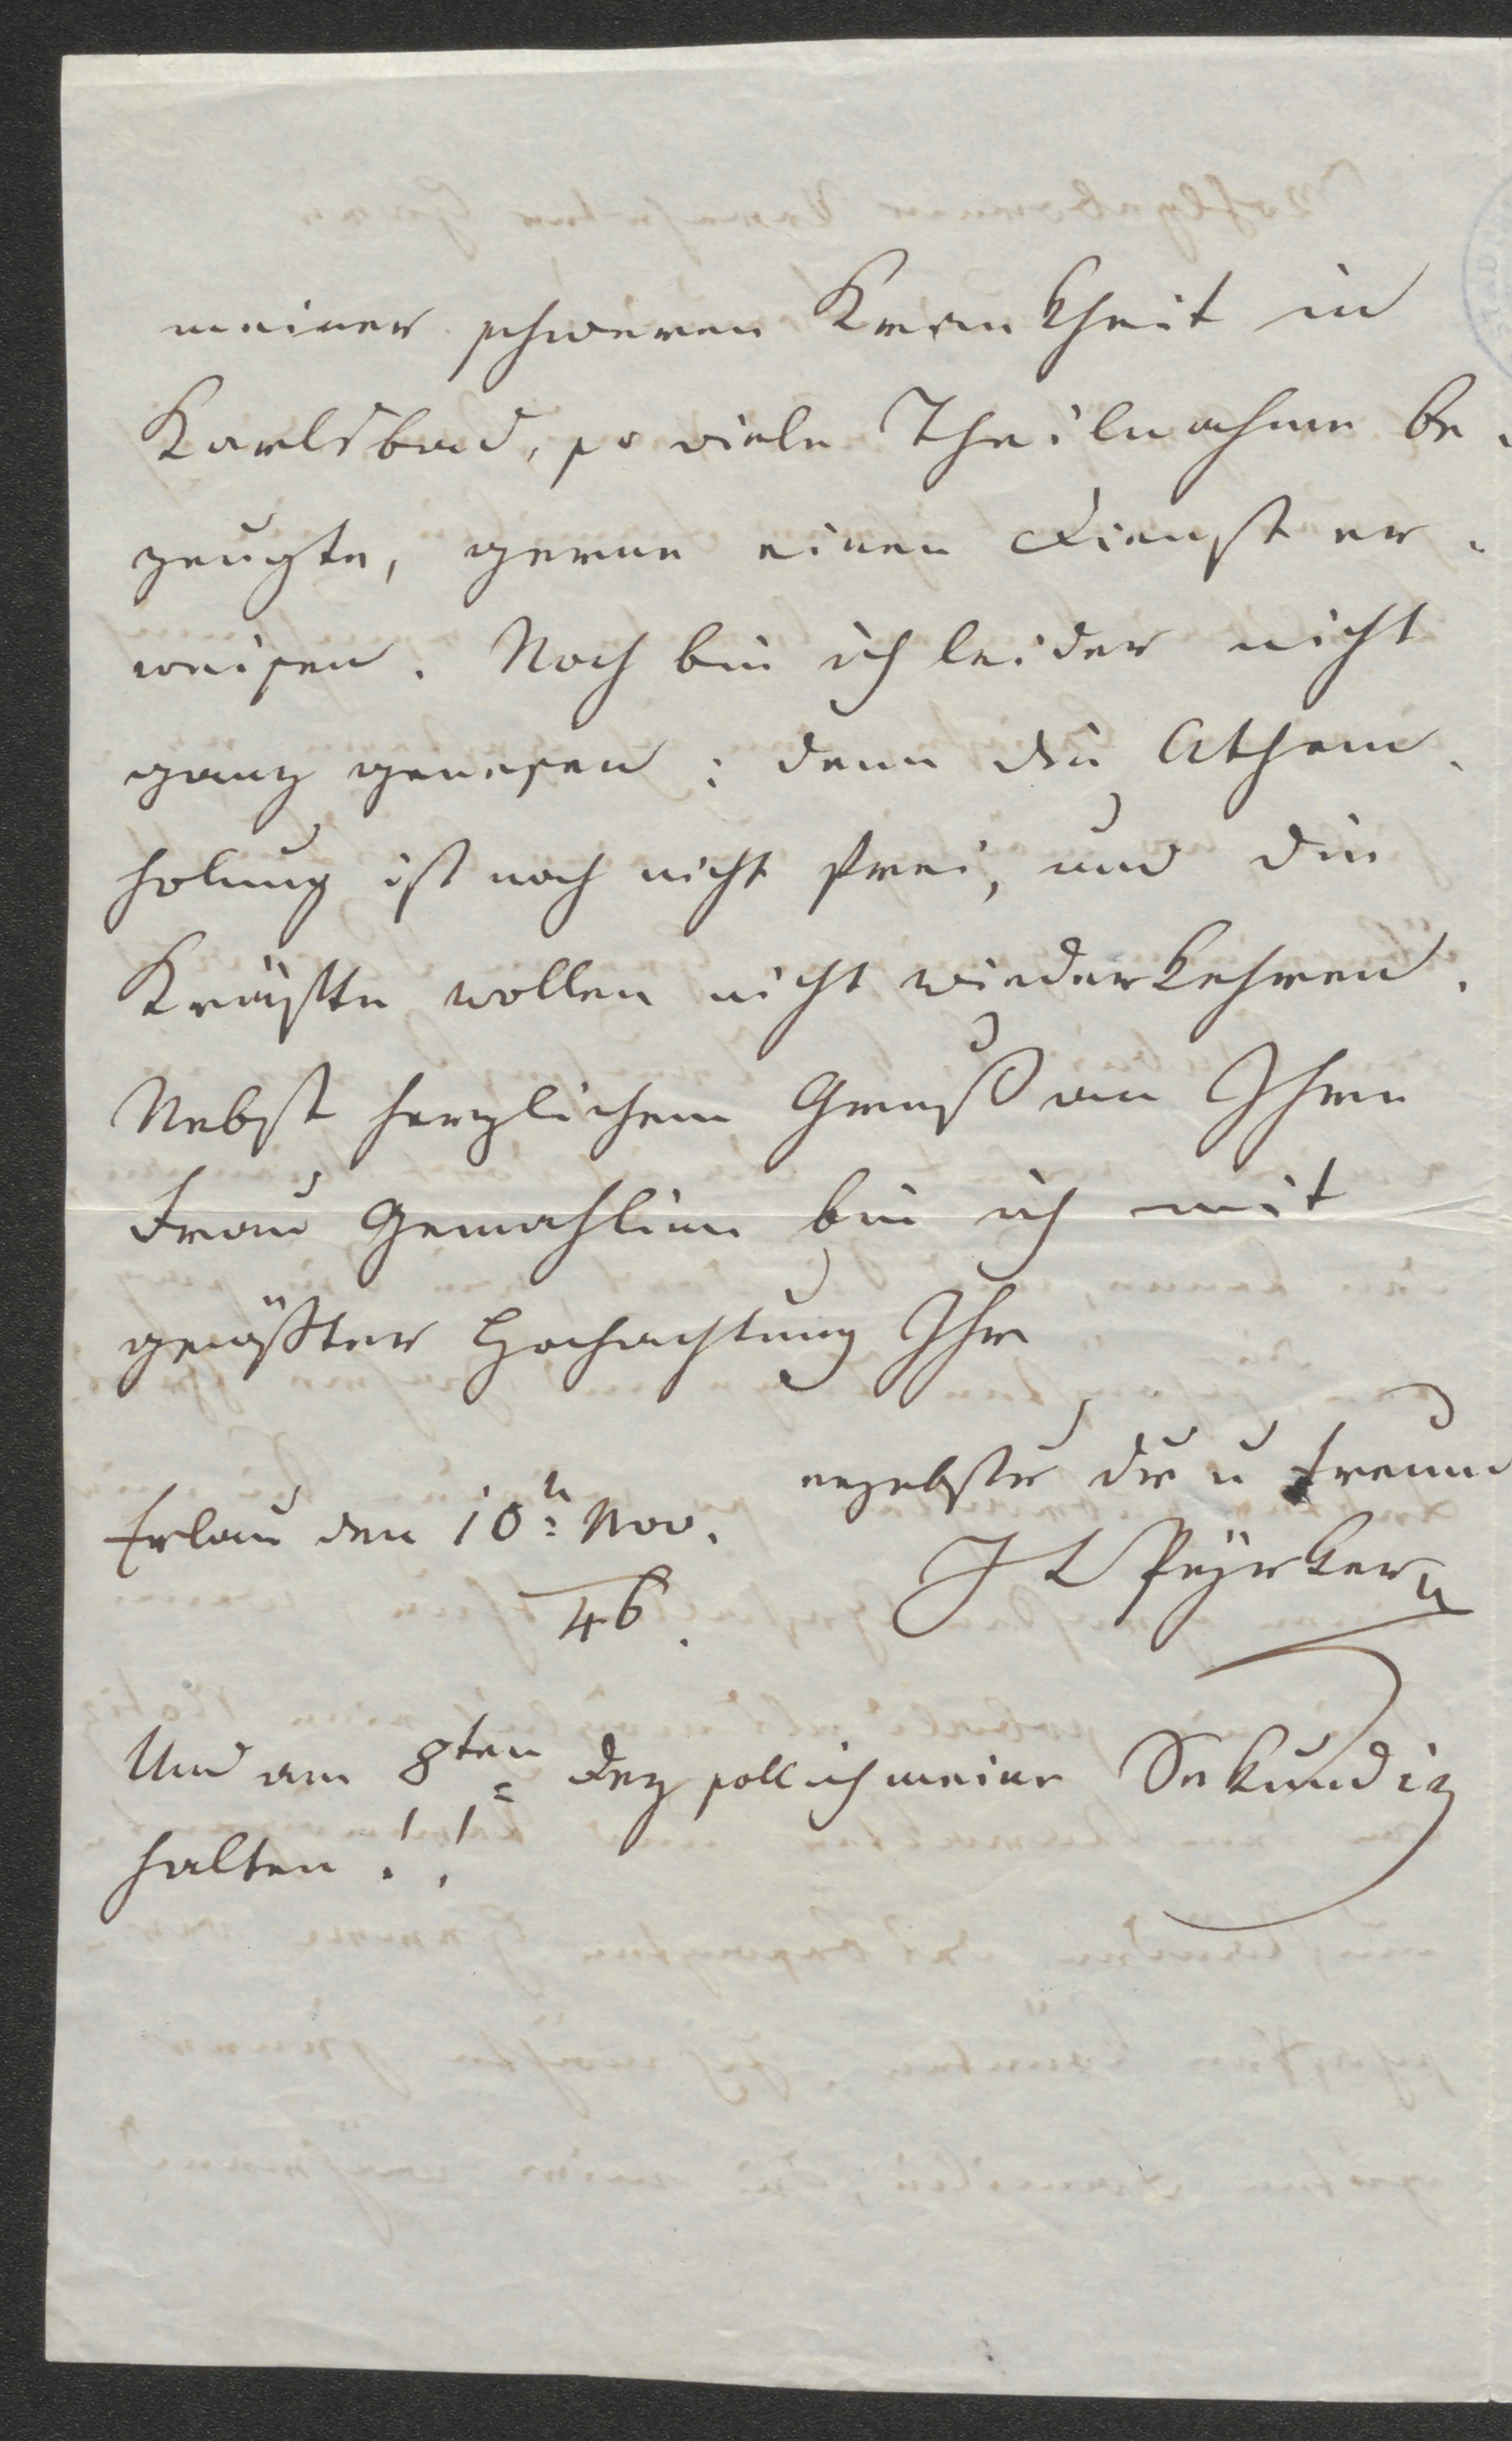 meiner schweren Krankheit in
Karlsbad, so viele Theilnahme be-
zeugte, gerne einen Dienst er-
weisen. Noch bin ich leider nicht
ganz genesen: denn die Athem-
holung ist noch nicht frei, und die
Kräfte wollen nicht wiederkehren.
Nebst herzlichem Gruß an Ihre
Frau Gemahlinn bin ich mit
größter Hochachtung Ihr
ergebster Dr u Freund
Erlau den 10n: Nov.
46.
J L Pyrker
Und am 8ten Dez soll ich meine Sekundiz
halten!!